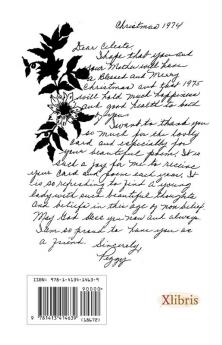 Christmas 1974
Dear Celeste,
I hope that you and
your Mother will have
a Blessed and Merry
Christmas and that 1975
will hold much happiness
and good health to both
of you.
I want to thank you
so much for the lovely
card and especially for
your beautiful poem. It is
such a joy for me to receive
your card and poem each year. It
is so refreshing to find a young
lady with such beautiful thoughts
and beliefs in this age of nonbelief.
May God bless you now and always.
I am so proud to have you as
a friend. Sincerely,
Peggy
ISBN: 978-1-4134-1463-9
90000
9 781413 414639
(18672)
Xlibris